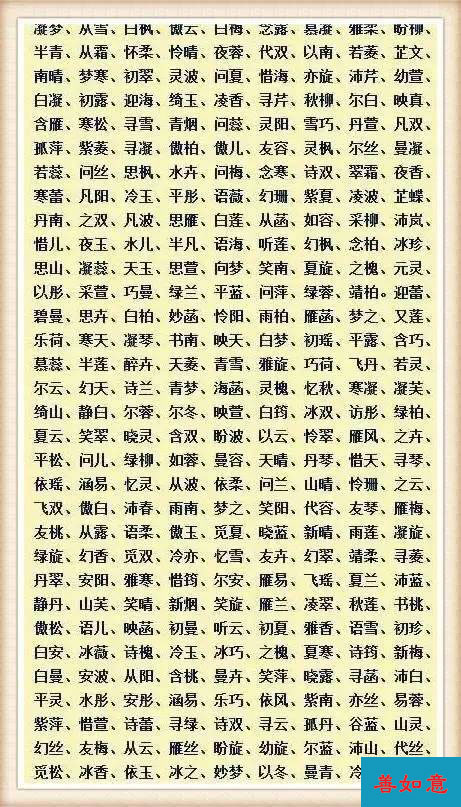 凝梦、从雪、白枫、傲云、白梅、念露、慕凝、雅柔、盼柳、
半青、从霜、怀柔、怜晴、夜蓉、代双、以南、若菱、芷文、
南晴、梦寒、初翠、灵波、问夏、惜海、亦旋、沛芹、幼萱、
白凝、初露、迎海、绮玉、凌香、寻芹、秋柳、尔白、映真、
含雁、寒松、寻雪、青烟、问蕊、灵阳、雪巧、丹萱、凡双、
孤萍、紫菱、寻凝、傲柏、傲儿、友容、灵枫、尔丝、曼凝、
若蕊、问丝、思枫、水卉、问梅、念寒、诗双、翠霜、夜香、
寒蕾、凡阳、冷玉、平彤、语薇、幻珊、紫夏、凌波、芷蝶、
丹南、之双、凡波、思雁、白莲、从菡、如容、采柳、沛岚、
惜儿、夜玉、水儿、半凡、语海、听莲、幻枫、念柏、冰珍、
思山、凝蕊、天玉、思萱、向梦、笑南、夏旋、之槐、元灵、
以彤、采萱、巧曼、绿兰、平蓝、问萍、绿蓉、靖柏。迎蕾、
碧曼、思卉、白柏、妙菡、怜阳、雨柏、雁菡、梦之、又莲、
乐荷、寒天、凝琴、书南、映天、白梦、初瑶、平露、含巧、
慕蕊、半莲、醉卉、天菱、青雪、雅旋、巧荷、飞丹、若灵、
尔云、幻天、诗兰、青梦、海菡、灵槐、忆秋、寒凝、凝芙、
绮山、静白、尔蓉、尔冬、映萱、白筠、冰双、访彤、绿柏、
夏云、笑翠、晓灵、含双、盼波、以云、怜翠、雁风、之卉、
平松、问儿、绿柳、如蓉、曼容、天晴、丹琴、惜天、寻琴、
依瑶、涵易、忆灵、从波、依柔、问兰、山晴、怜珊、之云、
飞双、傲白、沛春、雨南、梦之、笑阳、代容、友琴、雁梅、
友桃、从露、语柔、傲玉、觅夏、晓蓝、新晴、雨莲、凝旋、
绿旋、幻香、觅双、冷亦、忆雪、友卉、幻翠、靖柔、寻菱、
丹翠、安阳、雅寒、惜筠、尔安、雁易、飞瑶、夏兰、沛蓝、
静丹、山芙、笑晴、新烟、笑旋、雁兰、凌翠、秋莲、书桃、
傲松、语儿、映菡、初曼、听云、初夏、雅香、语雪、初珍、
白安、冰薇、诗槐、冷玉、冰巧、之槐、夏寒、诗筠、新梅、
白曼、安波、从阳、含桃、曼卉、笑萍、晓露、寻菡、沛白、
平灵、水彤、安彤、涵易、乐巧、依风、紫南、亦丝、易蓉、
紫萍、惜萱、诗蕾、寻绿、诗双、寻云、孤丹、谷蓝、山灵、
幻丝、友梅、从云、雁丝、盼旋、幼旋、尔蓝、沛山、代丝、
觅松、冰香、依玉、冰之、妙梦、以冬、曼青、冷
善如意